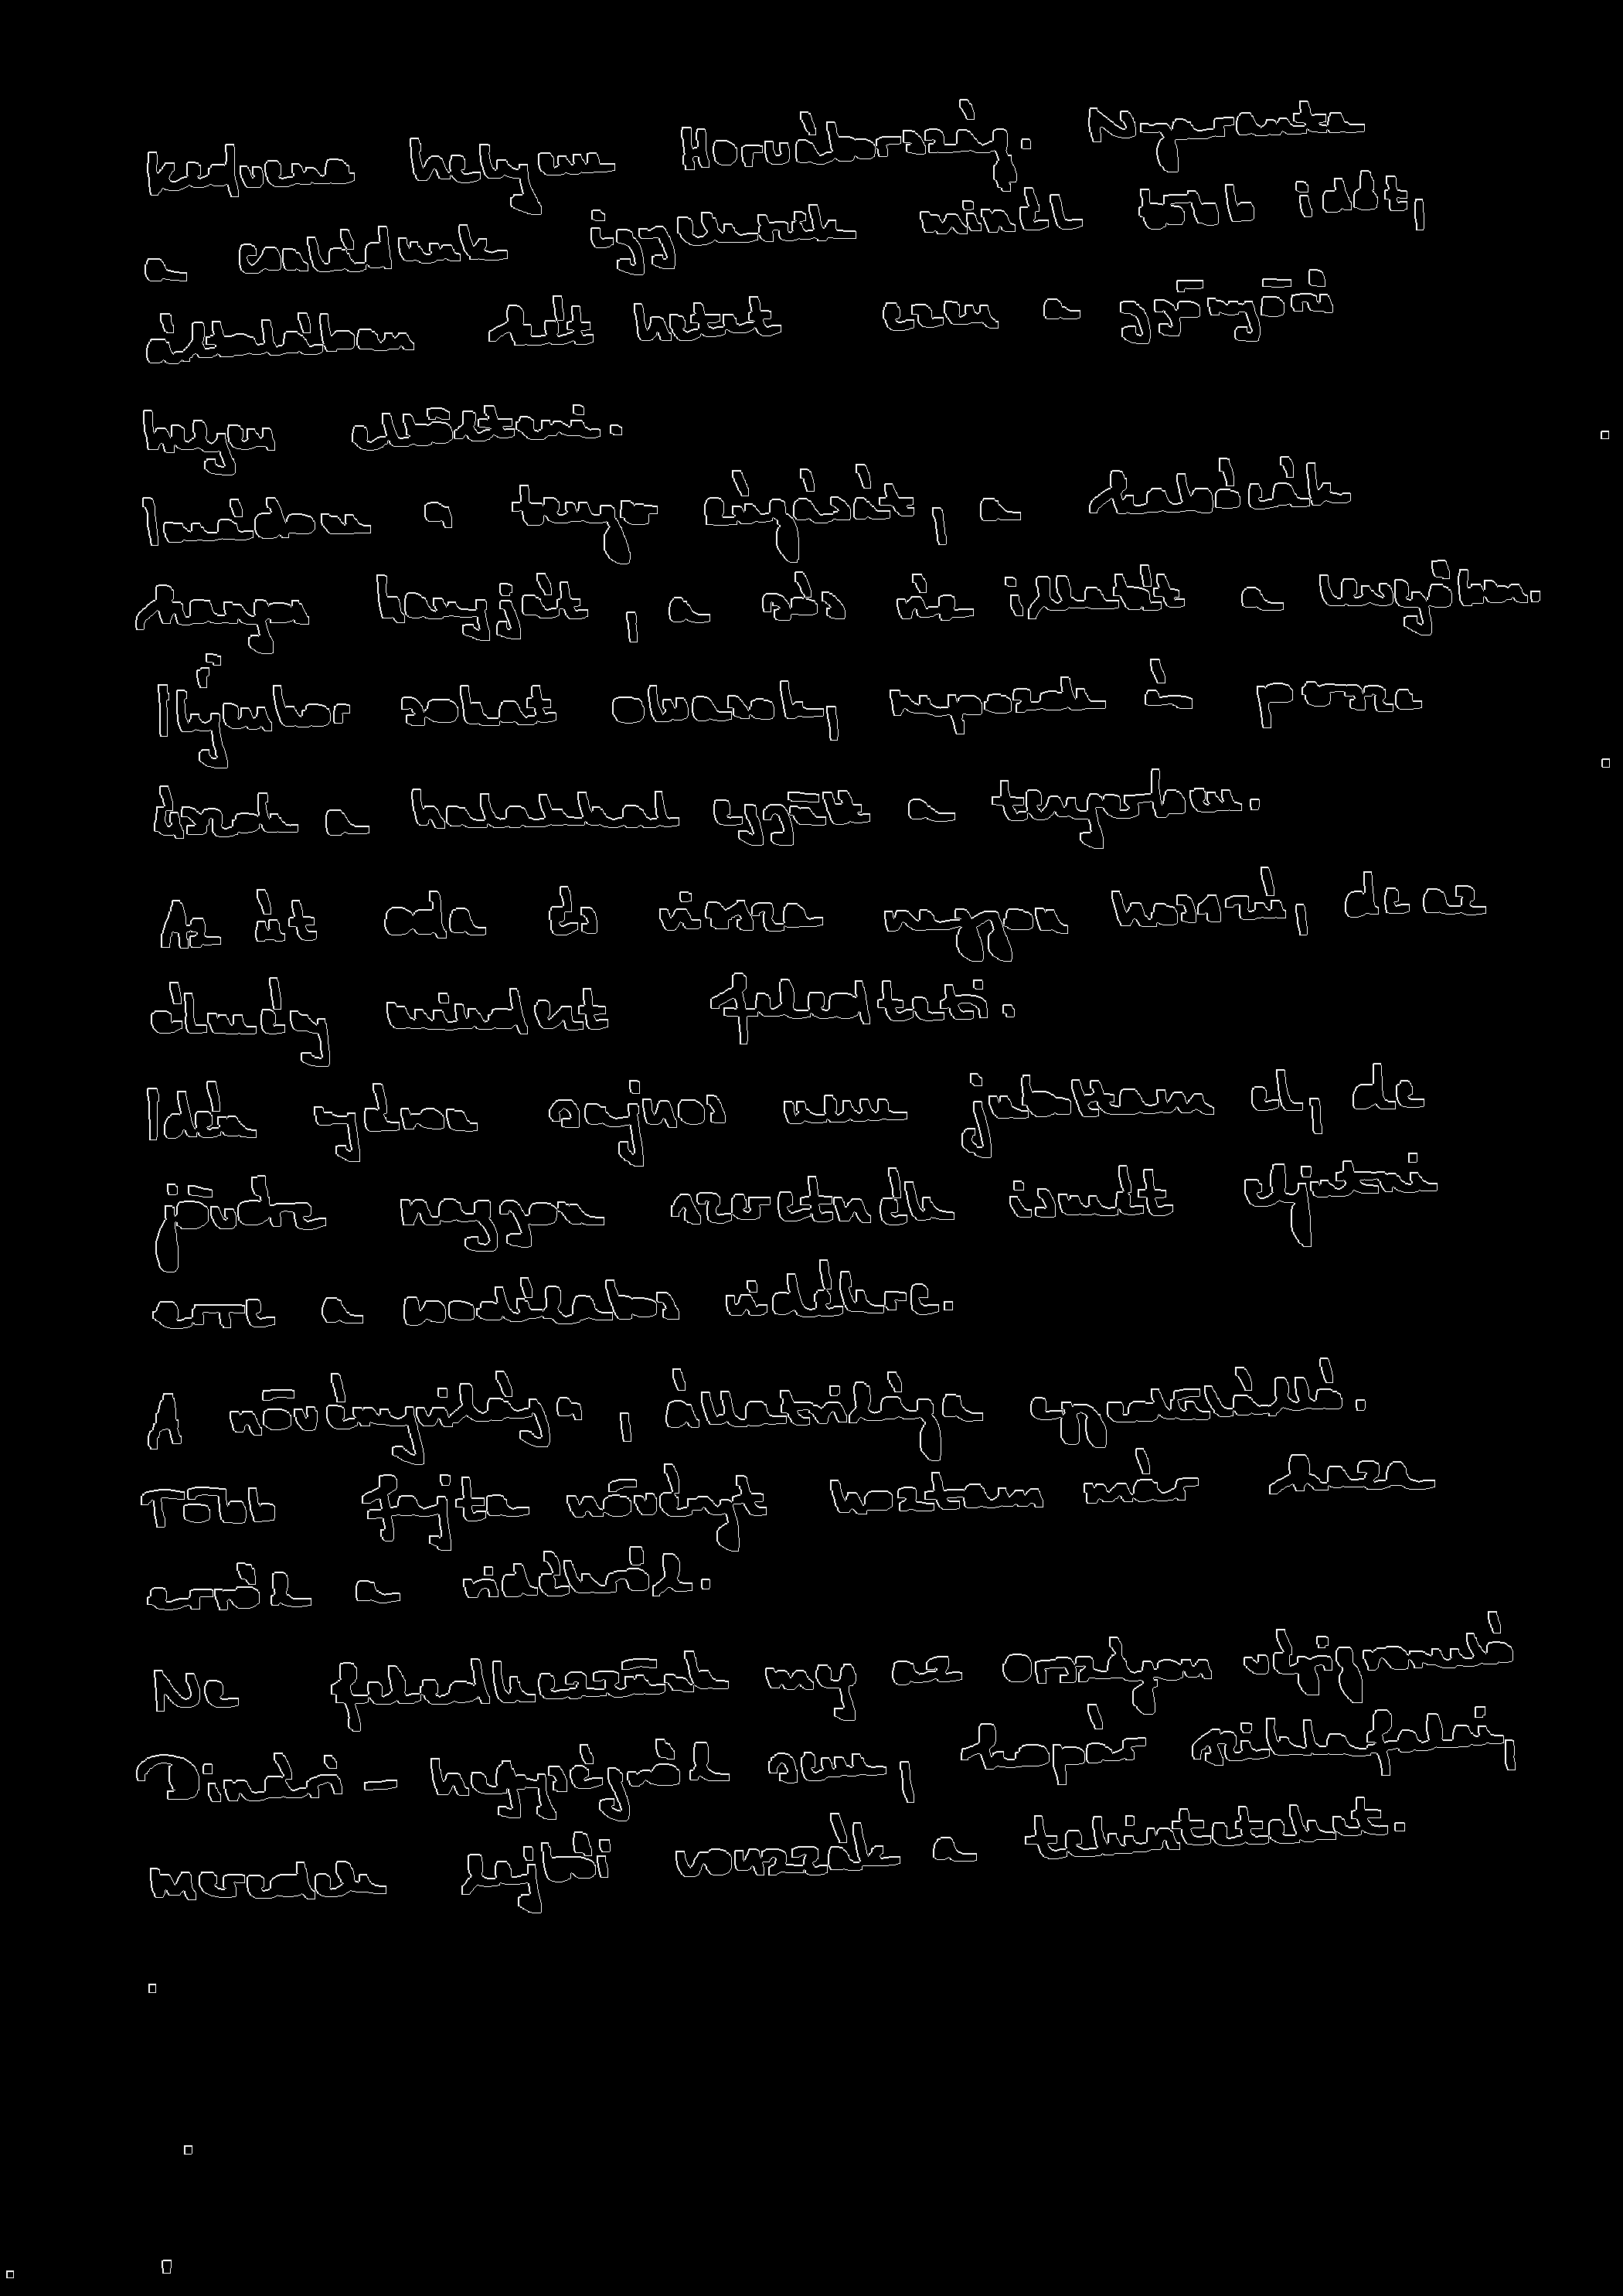 Kedvenc helyem Horvátország. Nyaranta
a családunk igyekszik minél több időt,
általában két hetet ezen a gyönyörű
helyen eltölteni.
Imádom a tenger zúgását, a kabócák
hangját, a sós víz illatát a levegőben.
Ilyenkor sokat olvasok, napozok és persze
úszok a halakkal együtt a tengerben.
Az út oda és vissza nagyon hosszú, de az
élmény mindent feledteti.
Idén nyáron sajnos nem jutottam el, de
jövőre nagyon szeretnék ismét eljutni
erre a csodálatos vidékre.
A növényvilága, állatvilága egyedülálló.
Több fajta növényt hoztam már haza
erről a vidékről.
Ne feledkezzünk meg az országon végigvonuló
Dinári-hegységről sem, kopár sziklafalai,
meredek lejtői vonzzák a tekinteteket.